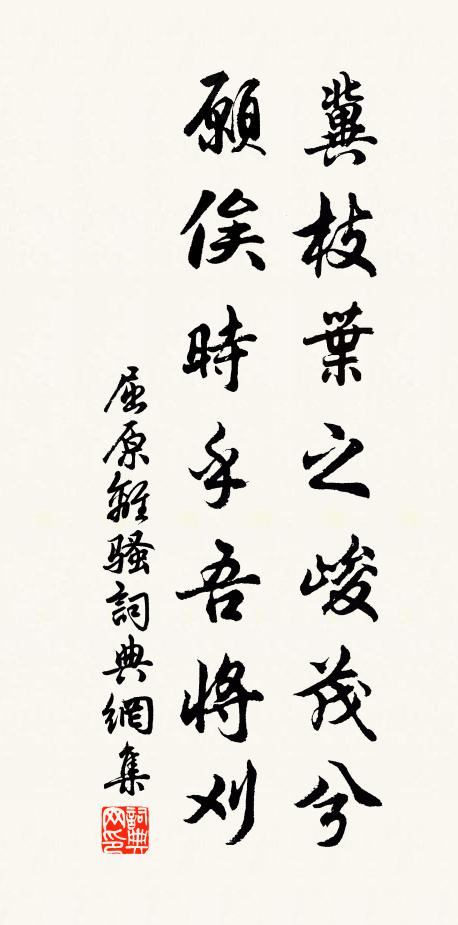 冀枝葉之峻茂兮
願俟時乎吾將刈
屈原離騷詞典網集
詞典網印